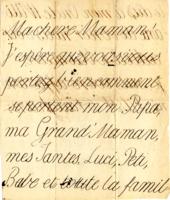 Ma chere Maman
J'espere que vous vous
portez bien comment
se portent mon Papa,
ma Grand' Maman,
mes Tantes, Luci,
Babe et toute la famil